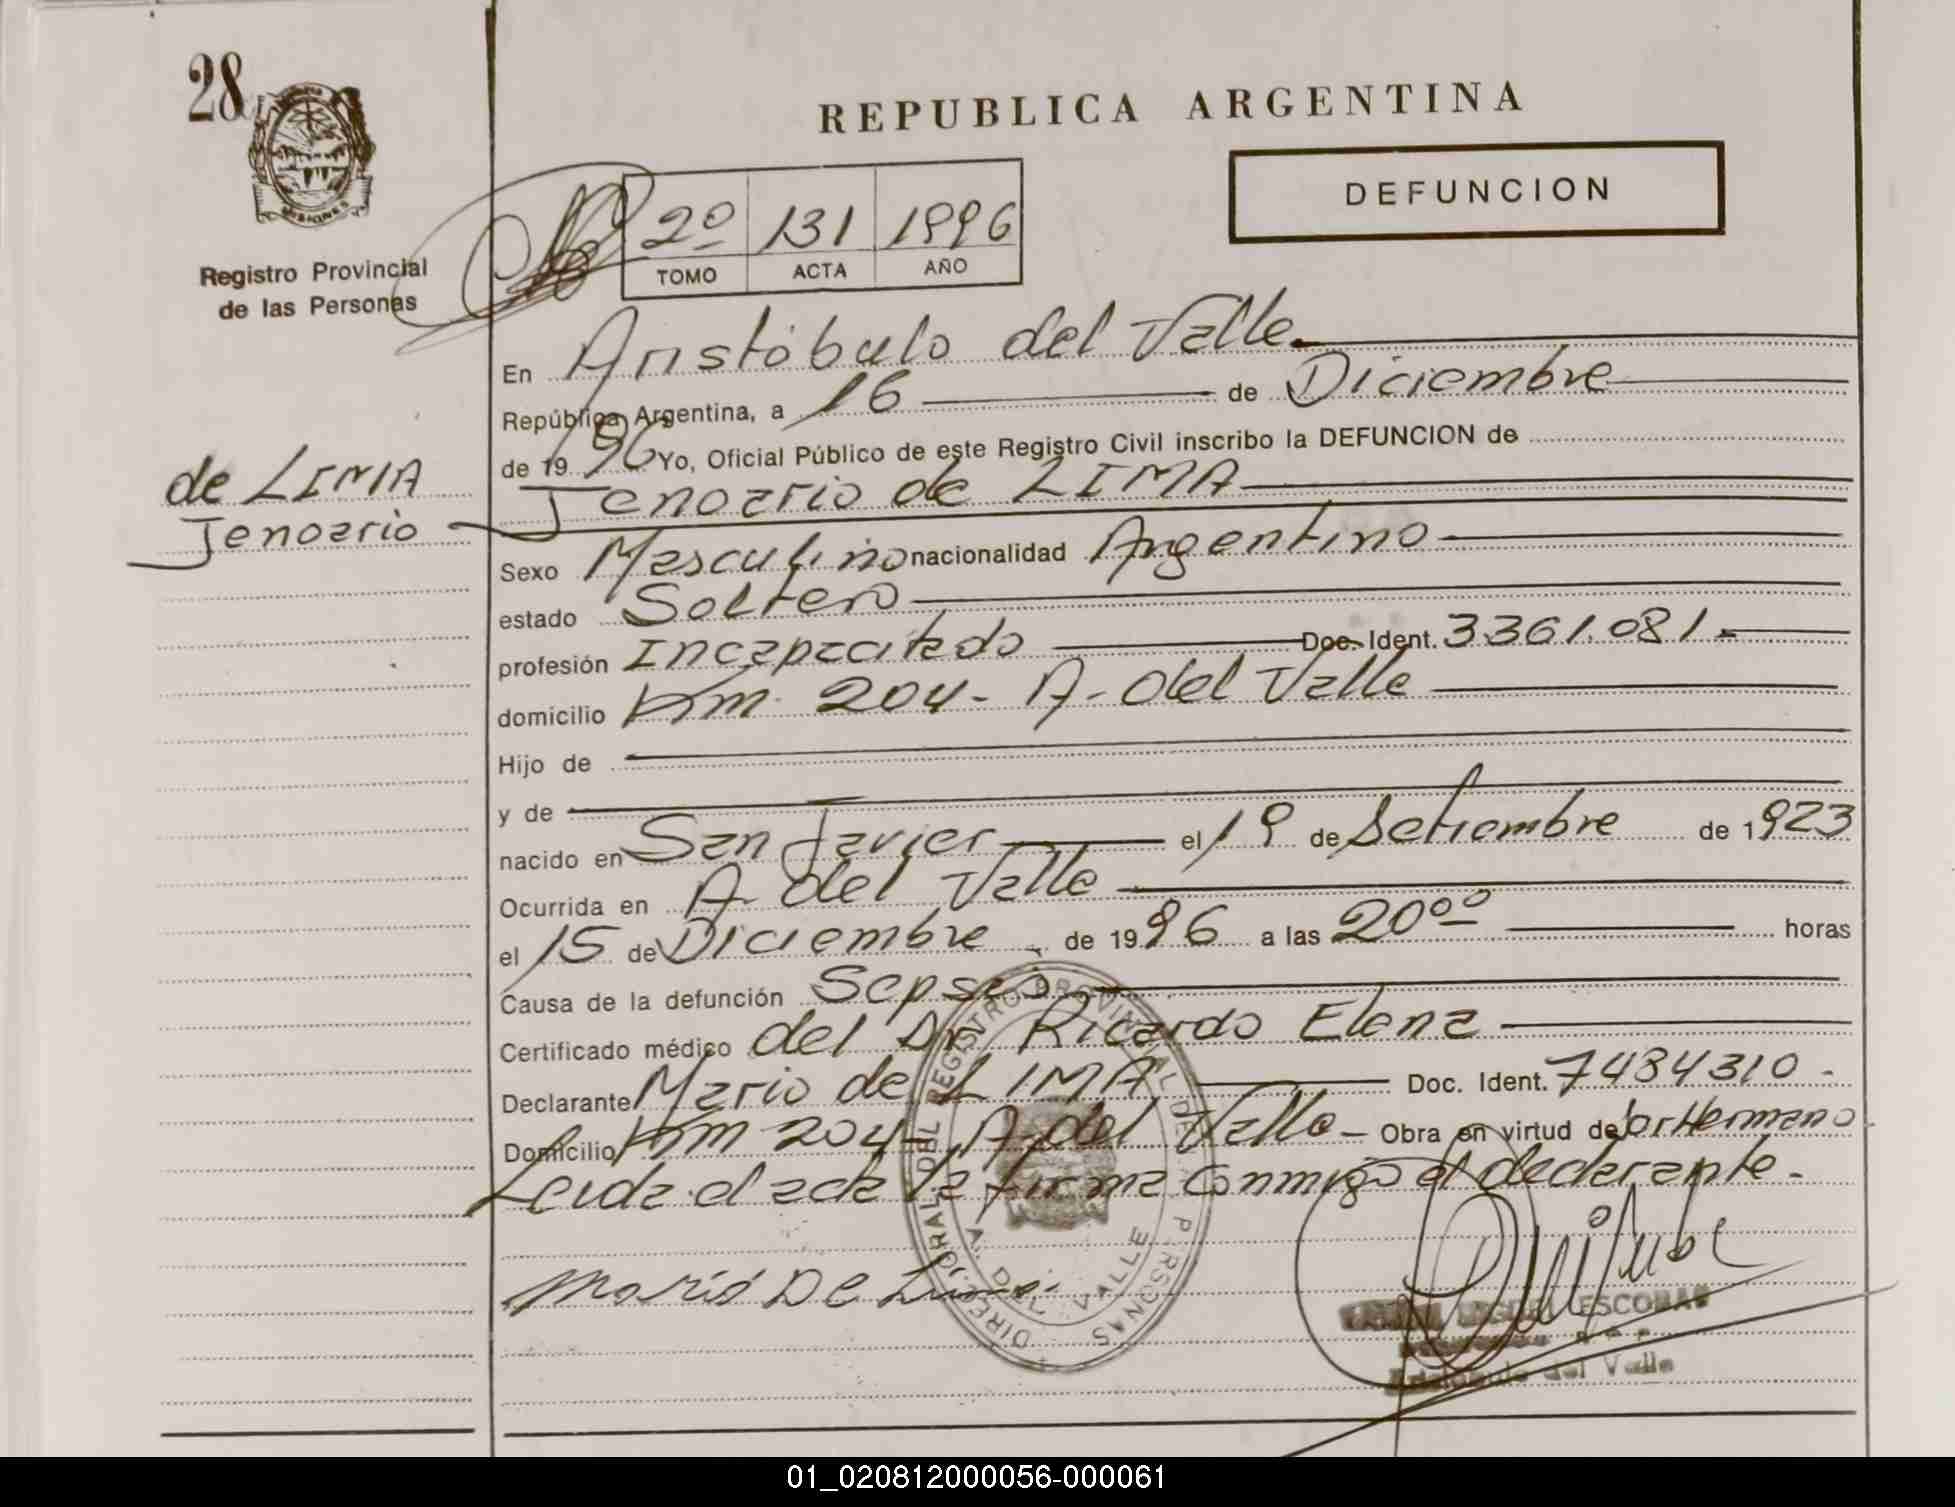 28
REPUBLICA ARGENTINA
DEFUNCION
MISIONES
Registro Provincial
de las Personas
2º 131 1996
TOMO ACTA AÑO
En Aristóbulo del Valle
República Argentina, a 16 de Diciembre
de 1996 Yo, Oficial Público de este Registro Civil inscribo la DEFUNCION de
de LIMA
Jenoario
Jenoario de LIMA
Sexo Masculino nacionalidad Argentino
estado Soltero
profesión Incapacitado Doc. Ident. 3361.081.-
domicilio Km. 204- A. del Valle
Hijo de
y de
nacido en San Javier el 19 de Setiembre de 1923
Ocurrida en A. del Valle
el 15 de Diciembre de 1996 a las 20ºº horas
Causa de la defunción Sepsis
Certificado médico del Dr. Ricardo Elena
Declarante Mario de LIMA Doc. Ident. 7484310-
Domicilio Km 204- A. del Valle- Obra en virtud de por Hermano
Leida el acta la firma conmigo el declarante-
Mario De Lima
DIREC. GRAL. DEL REGISTRO PROVINCIAL DE LAS PERSONAS
A. DEL VALLE
ESCOBAR
Aristóbulo del Valle
01_020812000056-000061